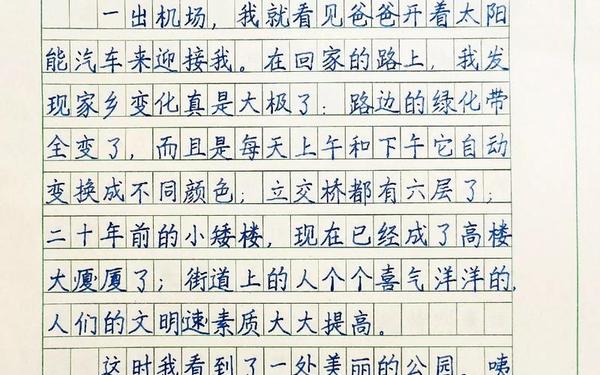 一出机场，我就看见爸爸开着太阳
能汽车来迎接我。在回家的路上，我发
现家乡变化真是大极了：路边的绿化带
全变了，而且是每天上午和下午它自动
变换成不同颜色；立交桥都有六层了；
二十年前的小矮楼，现在已经成了高楼
大厦厦了；街道上的人个个喜气洋洋的，
人们的文明速素质大大提高。
这时我看到了一处美丽的公园。咦